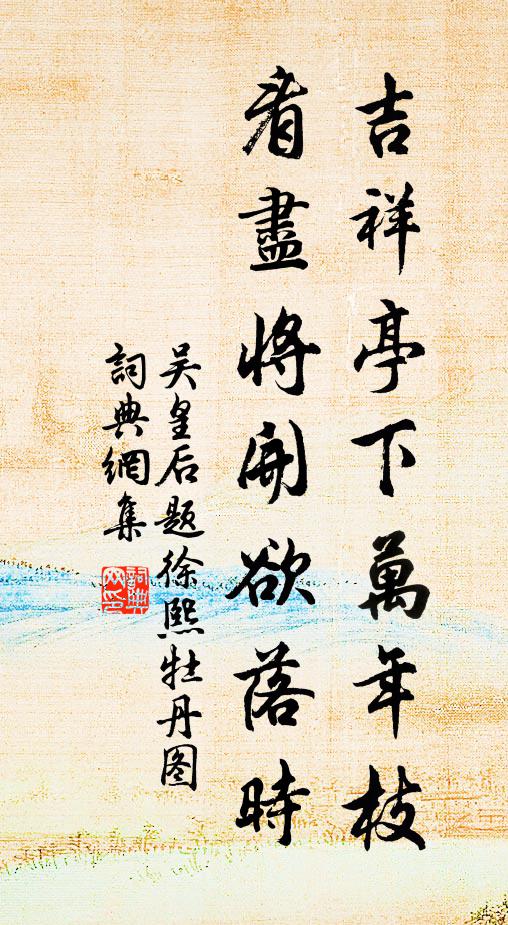 吉祥亭下萬年枝
看盡將開欲落時
吴皇后题徐熙牡丹图
詞典網集
詞典